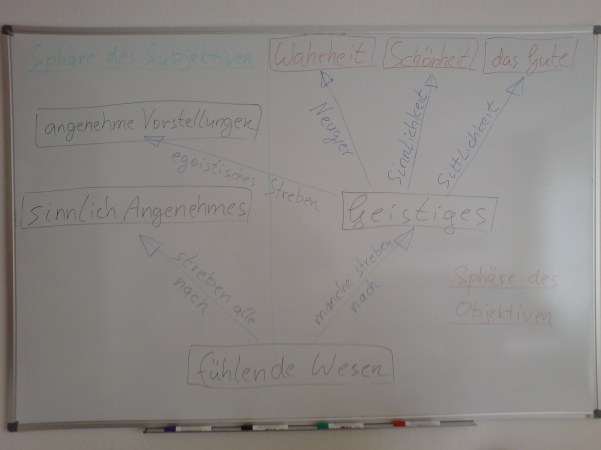 Sphäre des Subjektiven
Wahrheit
Schönheit
das Gute
angenehme Vorstellungen
Neugier
Sinnlichkeit
Sittlichkeit
egoistisches Streben
sinnlich Angenehmes
Geistiges
streben alle
nach
manche streben
nach
Sphäre des
Objektiven
fühlende Wesen